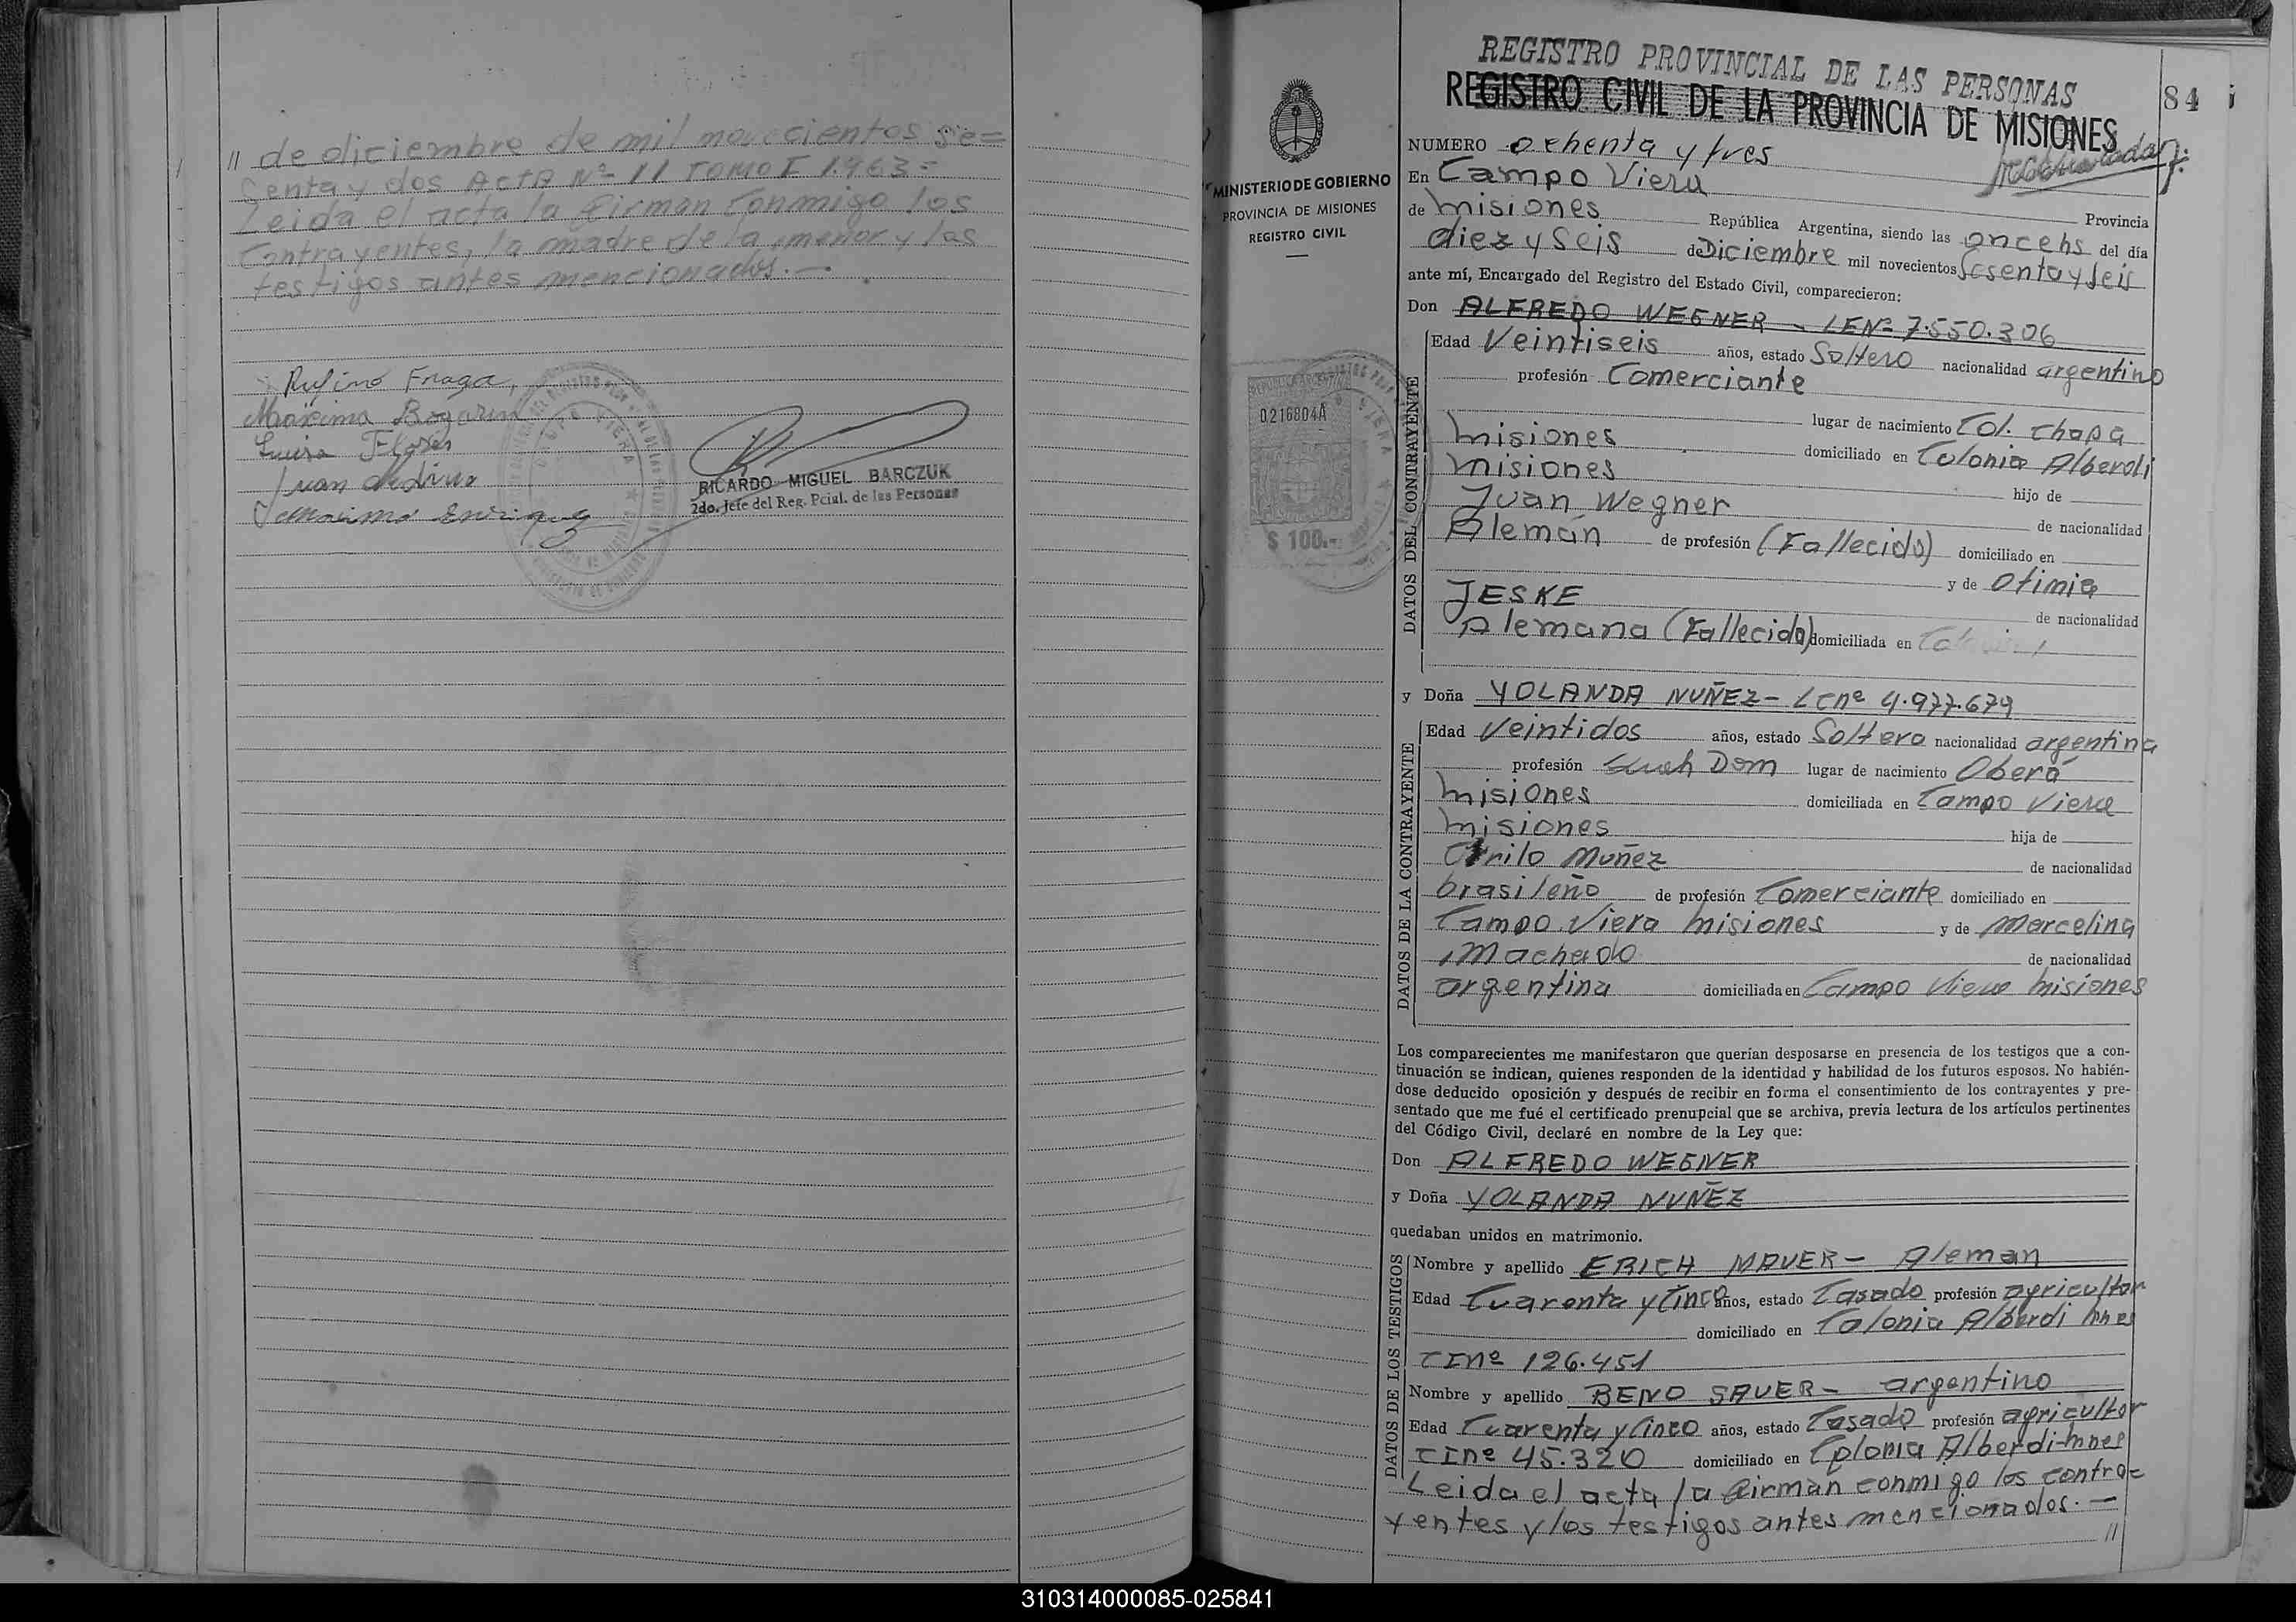 // de diciembre de mil novecientos se=
senta y dos Acta Nº 11 Tomo I 1963=
Leida el acta la firman conmigo los
contrayentes, la madre de la menor y las
testigos antes mencionados.—
Rufino Fraga
Máxima Bogarin
Luisa Flores
Juan
RICARDO MIGUEL BARCZUK
2do. Jefe del Reg. Pcial. de las Personas
MINISTERIO DE GOBIERNO
PROVINCIA DE MISIONES
REGISTRO CIVIL
0216804A
$ 100.-
REGISTRO PROVINCIAL DE LAS PERSONAS
REGISTRO CIVIL DE LA PROVINCIA DE MISIONES
84
NUMERO ochenta y tres
En Campo Viera
Provincia
de Misiones República Argentina, siendo las once hs del día
diez y seis de Diciembre mil novecientos sesenta y seis
ante mí, Encargado del Registro del Estado Civil, comparecieron:
Don ALFREDO WEGNER - LE Nº 7.550.306
DATOS DEL CONTRAYENTE
Edad Veintiseis años, estado Soltero nacionalidad argentino
profesión Comerciante
lugar de nacimiento Col. Chapa
Misiones domiciliado en Colonia Alberdi
Misiones hijo de
Juan Wegner de nacionalidad
Alemán de profesión (Fallecido) domiciliado en
y de Otimia
JESKE de nacionalidad
Alemana (Fallecida) domiciliada en
y Doña YOLANDA NUÑEZ - LC nº 4.977.679
DATOS DE LA CONTRAYENTE
Edad Veintidos años, estado Soltera nacionalidad argentina
profesión Dom lugar de nacimiento Oberá
Misiones domiciliada en Campo Viera
Misiones hija de
Cirilo Nuñez de nacionalidad
brasileño de profesión Comerciante domiciliado en
Campo Viera Misiones y de Marcelina
Machado de nacionalidad
argentina domiciliada en Campo Viera Misiones
Los comparecientes me manifestaron que querían desposarse en presencia de los testigos que a con-
tinuación se indican, quienes responden de la identidad y habilidad de los futuros esposos. No habién-
dose deducido oposición y después de recibir en forma el consentimiento de los contrayentes y pre-
sentado que me fué el certificado prenupcial que se archiva, previa lectura de los artículos pertinentes
del Código Civil, declaré en nombre de la Ley que:
Don ALFREDO WEGNER
y Doña YOLANDA NUÑEZ
quedaban unidos en matrimonio.
DATOS DE LOS TESTIGOS
Nombre y apellido ERICH MAUER - Aleman
Edad Cuarenta y Cinco años, estado Casado profesión agricultor
domiciliado en Colonia Alberdi Mnes
CI nº 126.451
Nombre y apellido BENO SAUER - argentino
Edad Cuarenta y Cinco años, estado Casado profesión agricultor
CI nº 45.320 domiciliado en Colonia Alberdi-Mnes
Leida el acta la firman conmigo los contra=
yentes y los testigos antes mencionados.—
//
310314000085-025841